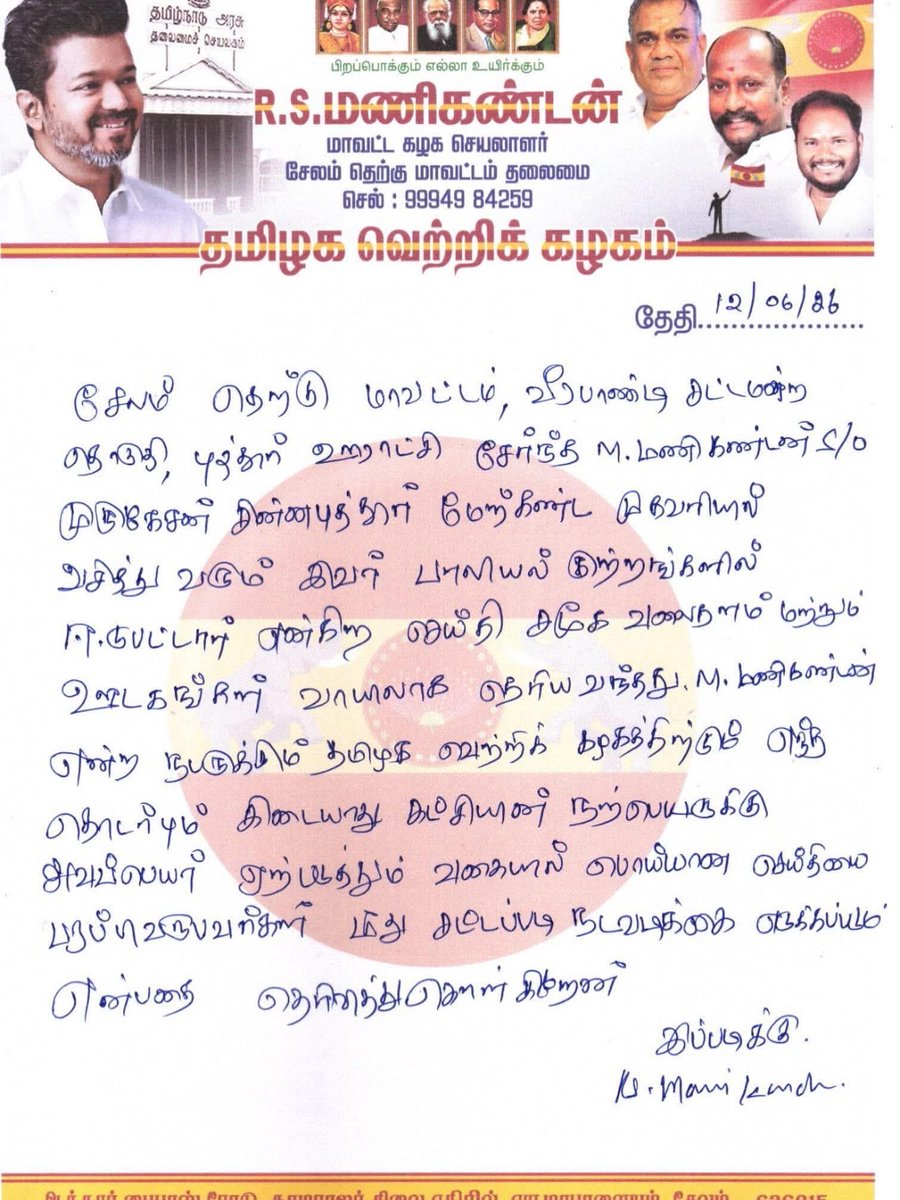 தமிழ்நாடு அரசு
தலைமைச் செயலகம்
பிறப்பொக்கும் எல்லா உயிர்க்கும்
R.S.மணிகண்டன்
மாவட்ட கழக செயலாளர்
சேலம் தெற்கு மாவட்டம் தலைமை
செல் : 99949 84259
தமிழக வெற்றிக் கழகம்
தேதி 12/06/26
சேலம் தெற்கு மாவட்டம், வீரபாண்டி சட்டமன்ற
தொகுதி, புத்தூர் ஊராட்சி சேர்ந்த M.மணிகண்டன் S/O
முருகேசன் சின்னபுத்தூர் மேற்கண்ட முகவரியில்
வசித்து வரும் இவர் பாலியல் குற்றங்களில்
ஈடுபட்டார் என்கிற செய்தி சமூக வலைதளம் மற்றும்
ஊடகங்கள் வாயிலாக தெரிய வந்தது. M.மணிகண்டன்
என்ற நபருக்கும் தமிழக வெற்றிக் கழகத்திற்கும் எந்த
தொடர்பும் கிடையாது கட்சியின் நற்பெயருக்கு
அவப்பெயர் ஏற்படுத்தும் வகையில் பொய்யான செய்தியை
பரப்பிவருபவர்கள் மீது சட்டப்படி நடவடிக்கை எடுக்கப்படும்
என்பதை தெரிவித்துகொள்கிறேன்
இப்படிக்கு.